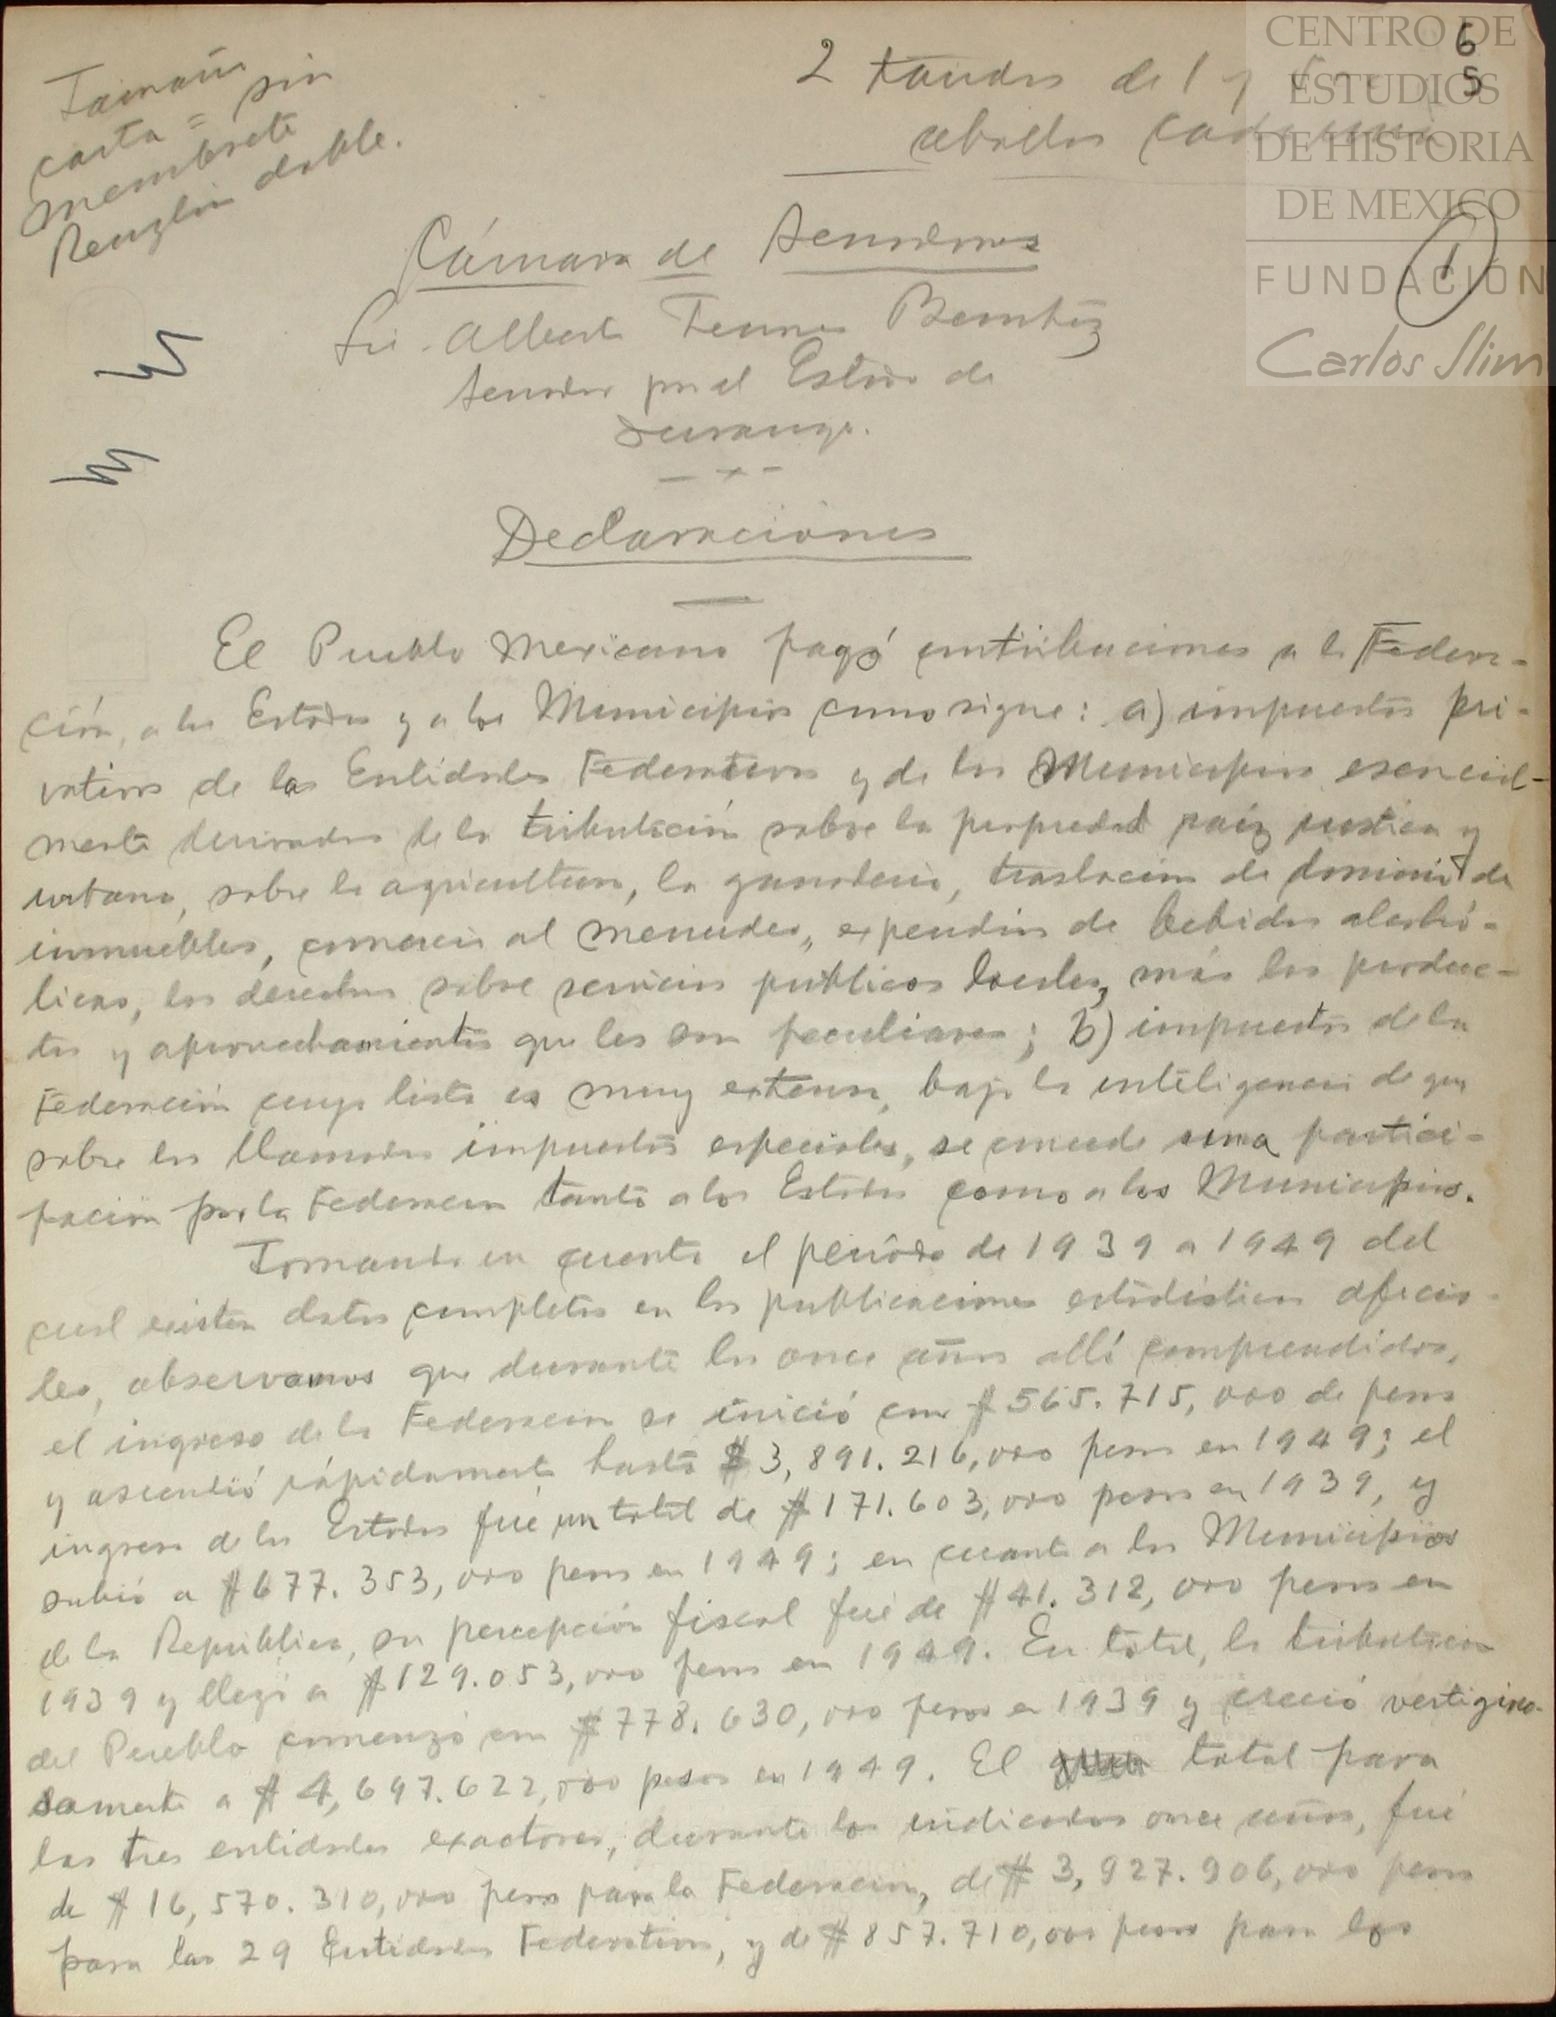 Tamaño
carta = sin
membrete
Renglón doble.
2 tandas de 1 y
cada una
6
5
CENTRO DE
ESTUDIOS
DE HISTORIA
DE MEXICO
FUNDACIÓN
Carlos Slim
1
Cámara de Senadores
Lic. Alberto Terrones Benítez
Senador por el Estado de
Durango.
- x -
Declaraciones
El Pueblo Mexicano pagó contribuciones a la Federa-
ción, a los Estados y a los Municipios como sigue: a) impuestos pri-
vativos de las Entidades Federativas y de los Municipios esencial-
mente derivados de la tributación sobre la propiedad raíz rústica y
urbana, sobre la agricultura, la ganadería, traslación de dominio de
inmuebles, comercio al menudeo, expendios de bebidas alcohó-
licas, los derechos sobre servicios públicos locales, más los produc-
tos y aprovechamientos que les son peculiares; b) impuestos de la
Federación cuya lista es muy extensa, bajo la inteligencia de que
sobre los llamados impuestos especiales, se concede una partici-
pación por la Federación tanto a los Estados como a los Municipios.
Tomando en cuenta el período de 1939 a 1949 del
cual existen datos completos en las publicaciones estadísticas oficia-
les, observamos que durante los once años allí comprendidos,
el ingreso de la Federación se inició con $565.715,000 de pesos
y ascendió rápidamente hasta $3,891.216,000 pesos en 1949; el
ingreso de los Estados fué un total de $171.603,000 pesos en 1939, y
subió a $677.353,000 pesos en 1949; en cuanto a los Municipios
de la República, su percepción fiscal fué de $41.312,000 pesos en
1939 y llegó a $129.053,000 pesos en 1949. En total, la tributación
del Pueblo comenzó con $778.630,000 pesos en 1939 y creció vertigino-
samente a $4,697.622,000 pesos en 1949. El total para
las tres entidades exactoras, durante los indicados once años, fué
de $16,570.310,000 pesos para la Federación, de $3,927.906,000 pesos
para las 29 Entidades Federativas, y de $857.710,000 pesos para los